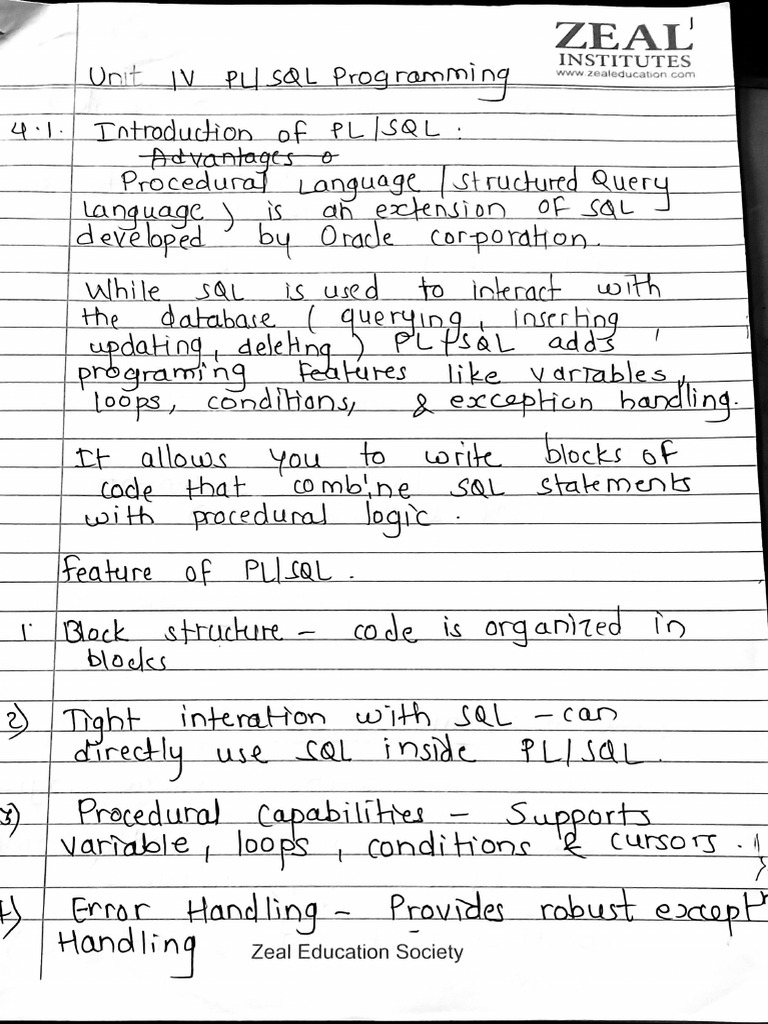 ZEAL
INSTITUTES
www.zealeducation.com
Unit IV PL/SQL Programming
4.1. Introduction of PL/SQL :
Advantages o
Procedural Language / Structured Query
Language) is an extension of SQL
developed by Oracle corporation.
While SQL is used to interact with
the database ( querying, inserting
updating, deleting ) PL/SQL adds
programing features like variables,
loops, conditions, & exception handling.
It allows you to write blocks of
code that combine SQL statements
with procedural logic.
Feature of PL/SQL.
1. Block structure - code is organized in
blocks
2) Tight interation with SQL - can
directly use SQL inside PL/SQL.
3) Procedural Capabilities - Supports
variable, loops, conditions & cursors.
4) Error Handling - Provides robust except
Handling
Zeal Education Society